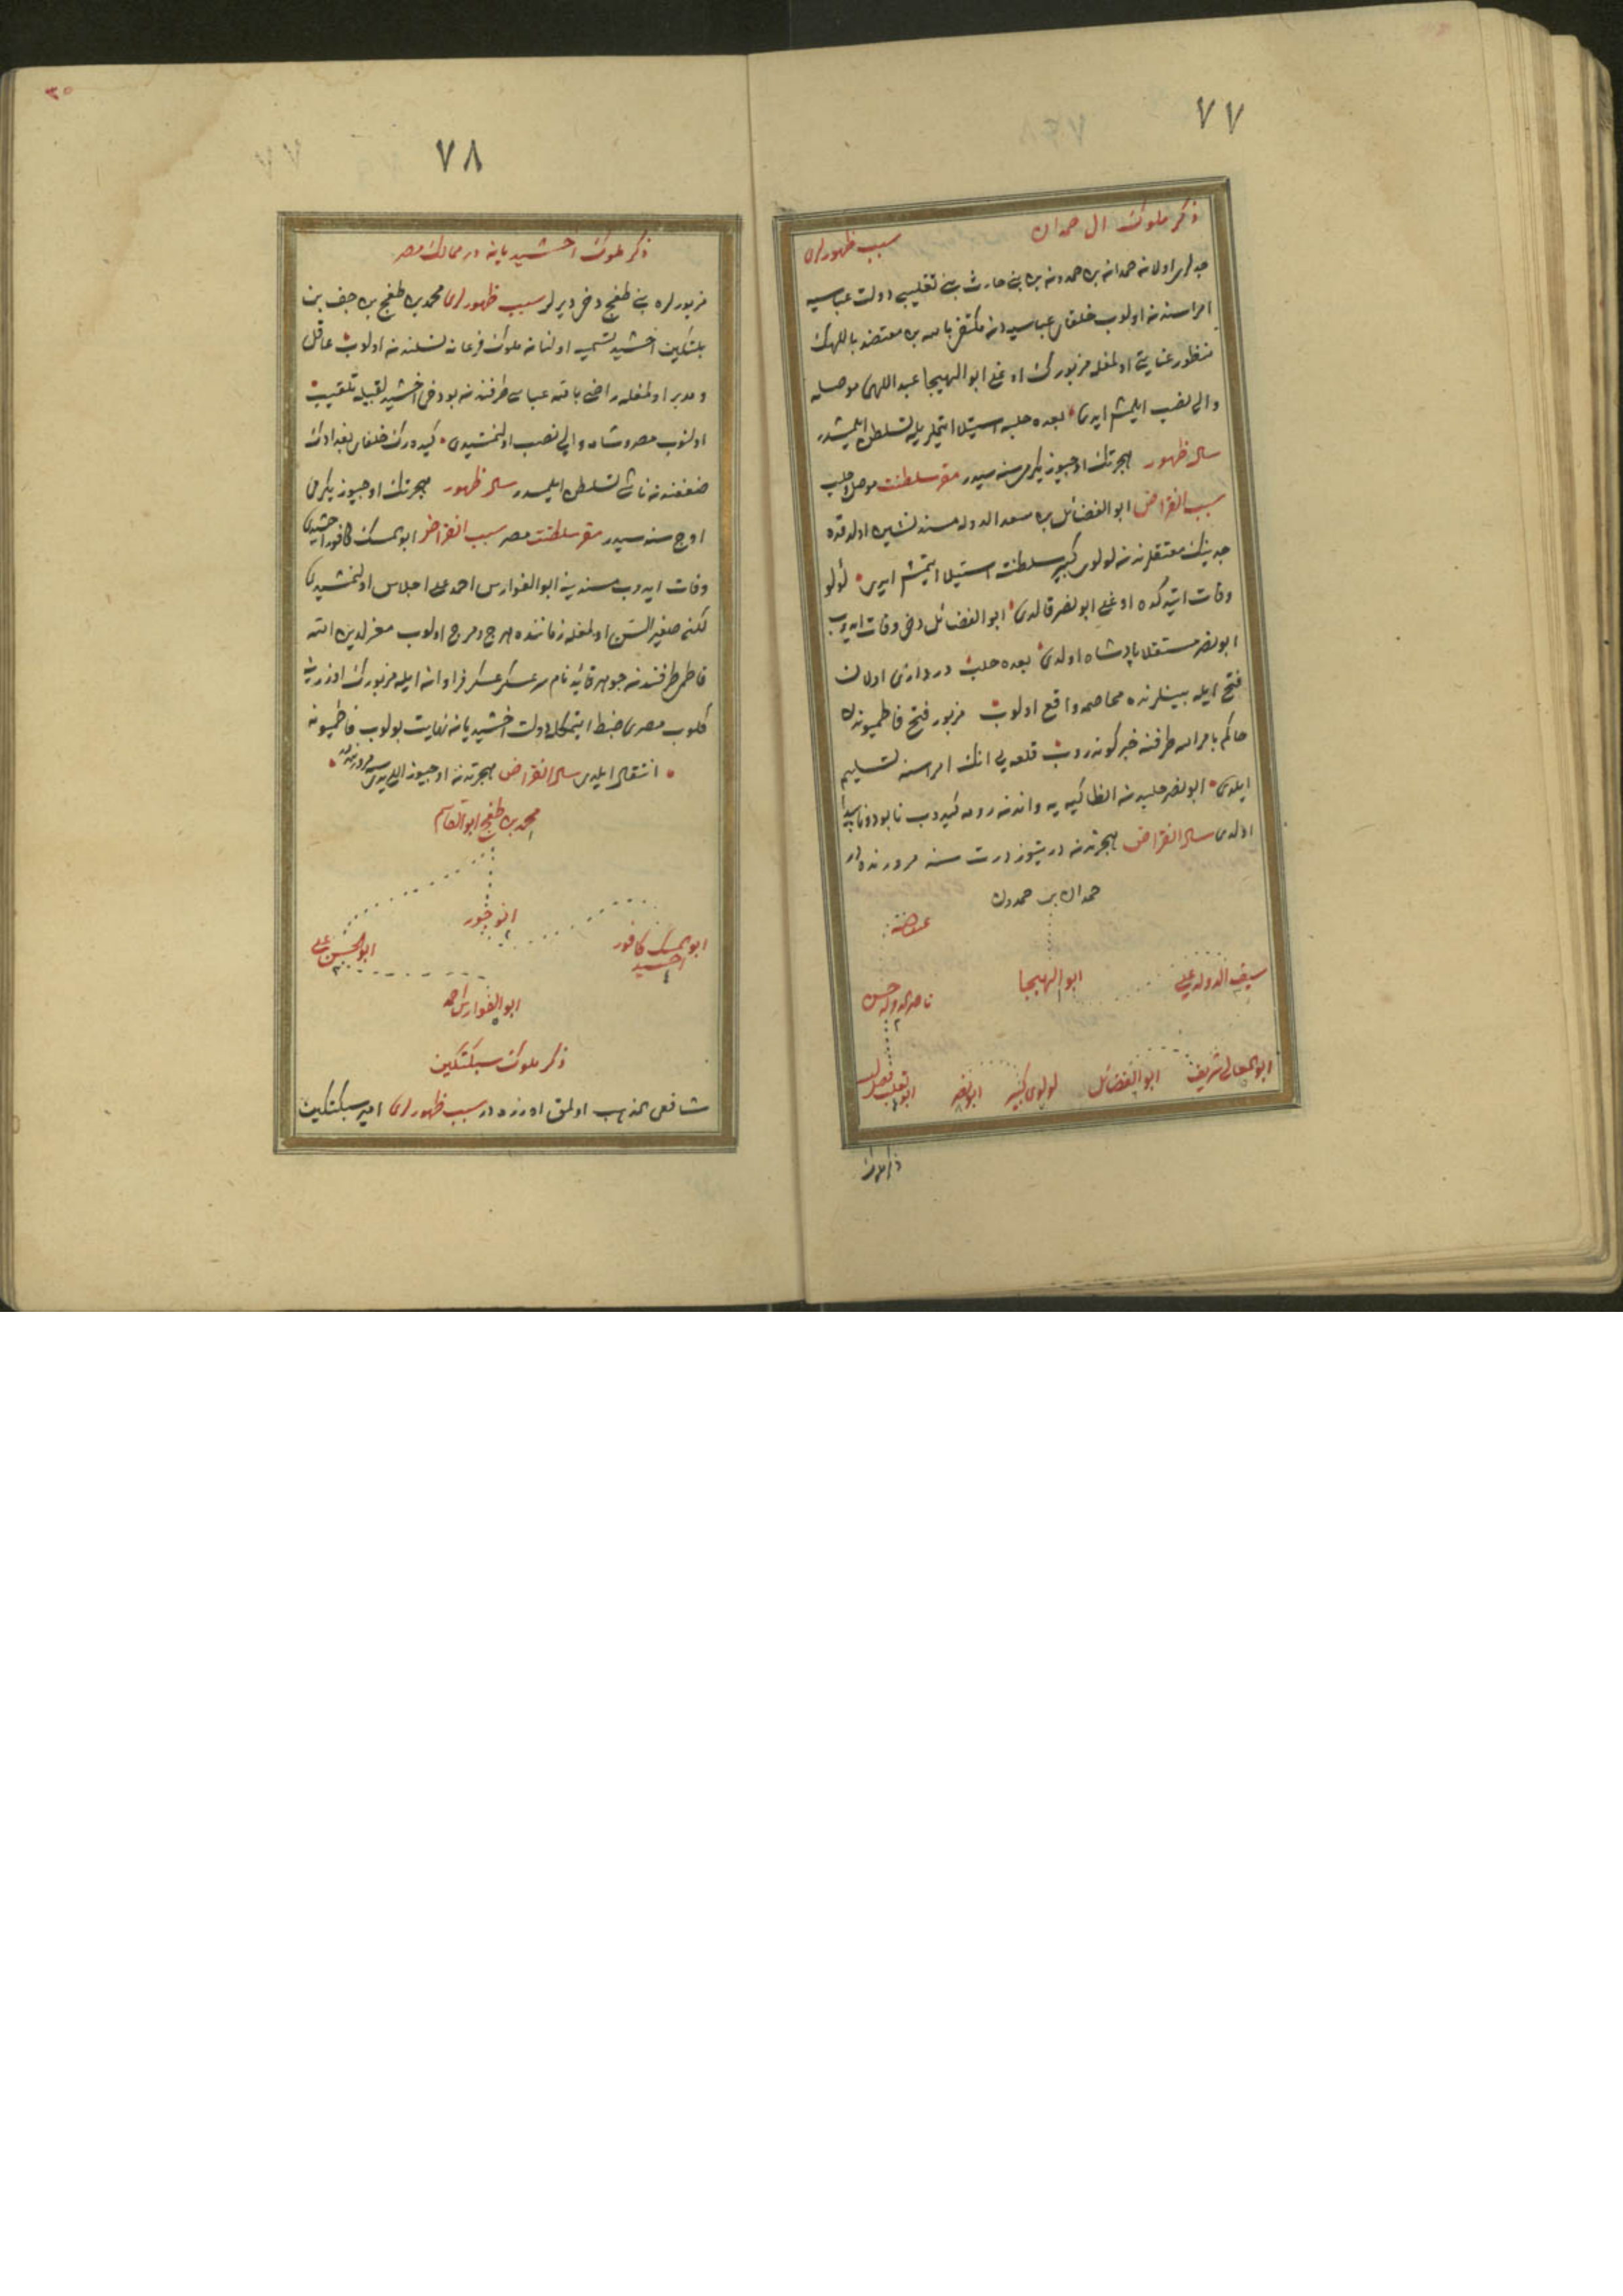 ٧٧
ذكر ملوك ال حمدان سبب ظهورلری
جدلری اولان حمدان بن حمدون بن بنی حارث بنی تغلبی دولت عباسیه
امراسندن اولوب خلفای عباسیه‌دن مكتفی بالله بن معتضد باللهك
منظور عنایتی اولمغله مزبورك اوغلی ابو الهیجا عبد اللهی موصله
والی نصب ایلمش ایدی بعده حلبه استیلا ایتملریله تسلطن ایلمشدر
سال ظهور هجرتك اوچیوز یكرمی سنه سیدر مقر سلطنت موصل و حلب
سبب انقراض ابو الفضائل بن سعد الدوله مسند نشین اولدقده
جدینك معتقلرندن لولوی كبیر سلطنت استیلا ایتمش ایدی لؤلو
وفات ایتدكده اوغلی ابو نصر قالدی ابو الفضائل دخی وفات ایدوب
ابو نصر مستقلا پادشاه اولدی بعده حلب دزداری اولان
فتح ایله بینلرنده مخاصمه واقع اولوب مزبور فتح فاطمیوندن
حاكم بامر الله طرفنه خبر كوندروب قلعه یی انك امراسنه تسلیم
ایلدی ابو نصر حلبدن انطاكیه یه واندن رومه كیدوب نابود و ناپیدا
اولدی سال انقراض هجرتدن درتیوز درت سنه مرورنده در
حمدان بن حمدون
سیف الدوله علی ابو الهیجا ناصر الدوله حسن
ابو المعالی شریف ابو الفضائل لولوی كبیر ابو نصر ابو تغلب فضل الله
ذكر ملوك
٣٥
٧٨
ذكر ملوك اخشیدیان در ممالك مصر
مزبورلره بنی طغج دخی دیرلر سبب ظهورلری محمد بن طغج بن جف بن
بلتكین اخشید تسمیه اولنان ملوك فرغانه نسلندن اولوب عاقل
و مدبر اولمغله راضی بالله عباسی طرفندن بو دخی اخشید لقبیله تلقیب
اولنوب مصر و شامه والی نصب اولنمشیدی كیده‌رك خلفای بغدادك
ضعفندن ناشی تسلطن ایلمیدر سال ظهور هجرتك اوچیوز یكرمی
اوچ سنه سیدر مقر سلطنت مصر سبب انقراض ابو المسك كافور اخشیدی
وفات ایدوب مسندینه ابو الفوارس احمد علی اجلاس اولنمشیدی
لكن صغیر السن اولمغله زماننده هرج و مرج اولوب معز لدین الله
فاطمی طرفندن جوهر قائد نام سرعسكر عسكر فراوان ایله مزبورك اوزرینه
كلوب مصری ضبط ایتمكله دولت اخشیدیان نهایت بولوب فاطمیونه
انتقال ایلدی سال انقراض هجرتدن اوچیوز اللی یدی سنه مرورنده
محمد بن طغج ابو القاسم
ابو المسك كافور اخشید انوجور ابو الحسن علی
ابو الفوارس احمد
ذكر ملوك سبكتكین
شافعی المذهب اولمق اوزره در سبب ظهورلری امیر سبكتكین